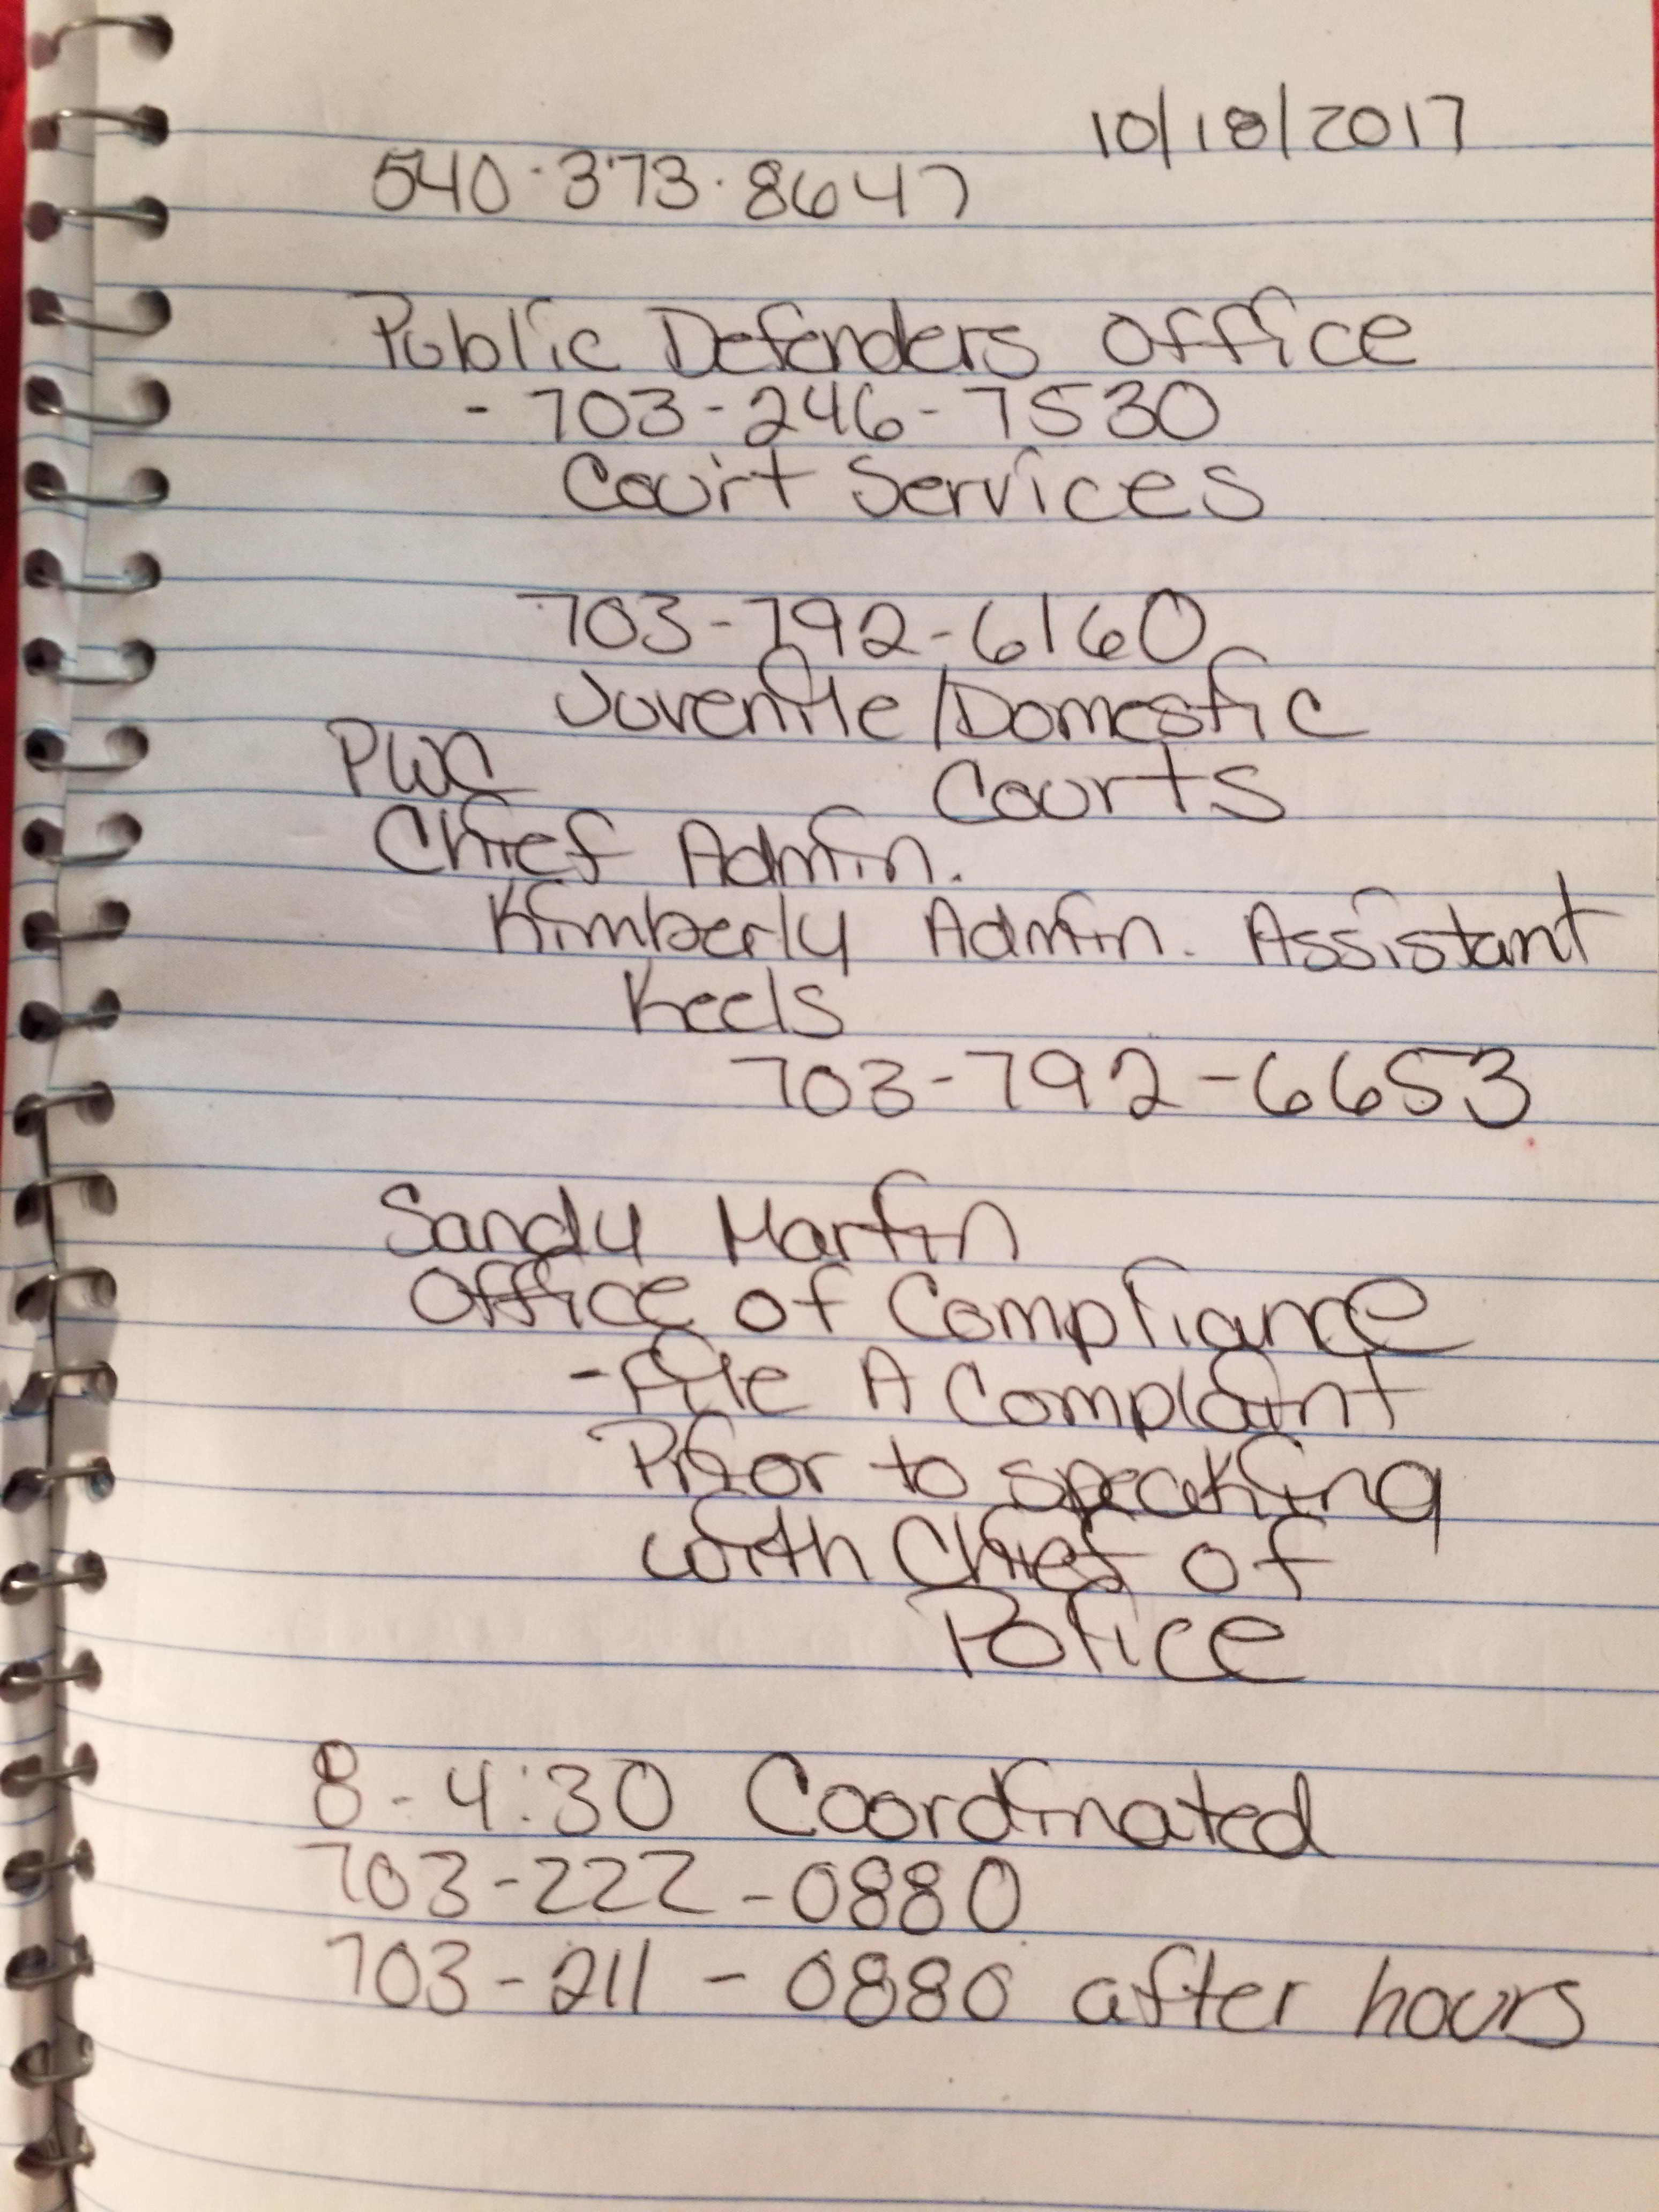 10/18/2017
540-373-8647
Public Defenders Office
- 703-246-7530
Court Services
703-792-6160
Juvenile/Domestic
PWC
Courts
Chief Admin.
Kimberly Admin. Assistant
Keels
703-792-6653
Sandy Martin
Office of Compliance
- File A Complaint
Prior to speaking
with Chief of
Police
8-4:30 Coordinated
703-222-0880
703-211-0880 after hours